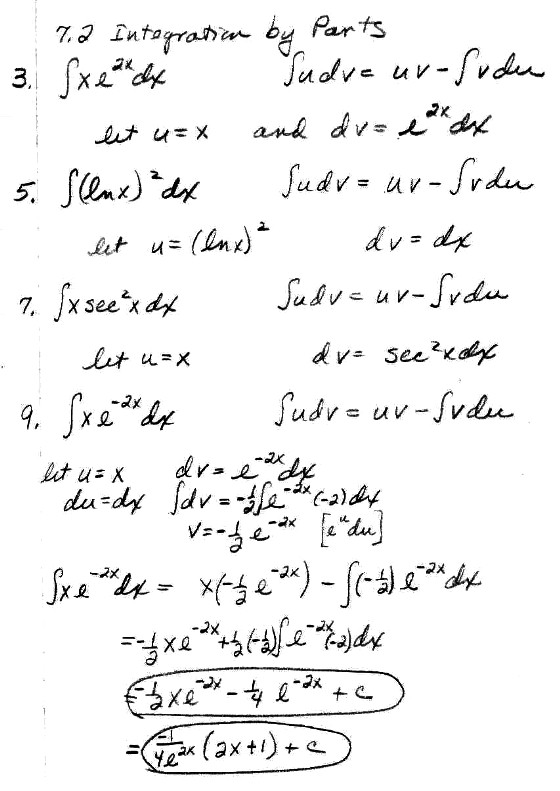 7.2 Integration by Parts
3. ∫xe^{2x}dx ∫udv = uv - ∫vdu
let u = x and dv = e^{2x}dx
5. ∫(lnx)^2 dx ∫udv = uv - ∫vdu
let u = (lnx)^2 dv = dx
7. ∫x sec^2x dx ∫udv = uv - ∫vdu
let u = x dv = sec^2x dx
9. ∫xe^{-2x}dx ∫udv = uv - ∫vdu
let u = x dv = e^{-2x}dx
du = dx ∫dv = -1/2∫e^{-2x}(-2)dx
v = -1/2 e^{-2x} [e^u du]
∫xe^{-2x}dx = x(-1/2 e^{-2x}) - ∫(-1/2)e^{-2x}dx
= -1/2 xe^{-2x} + 1/2(-1/2)∫e^{-2x}(-2)dx
= -1/2 xe^{-2x} - 1/4 e^{-2x} + c
= -1/4e^{2x} (2x+1) + c